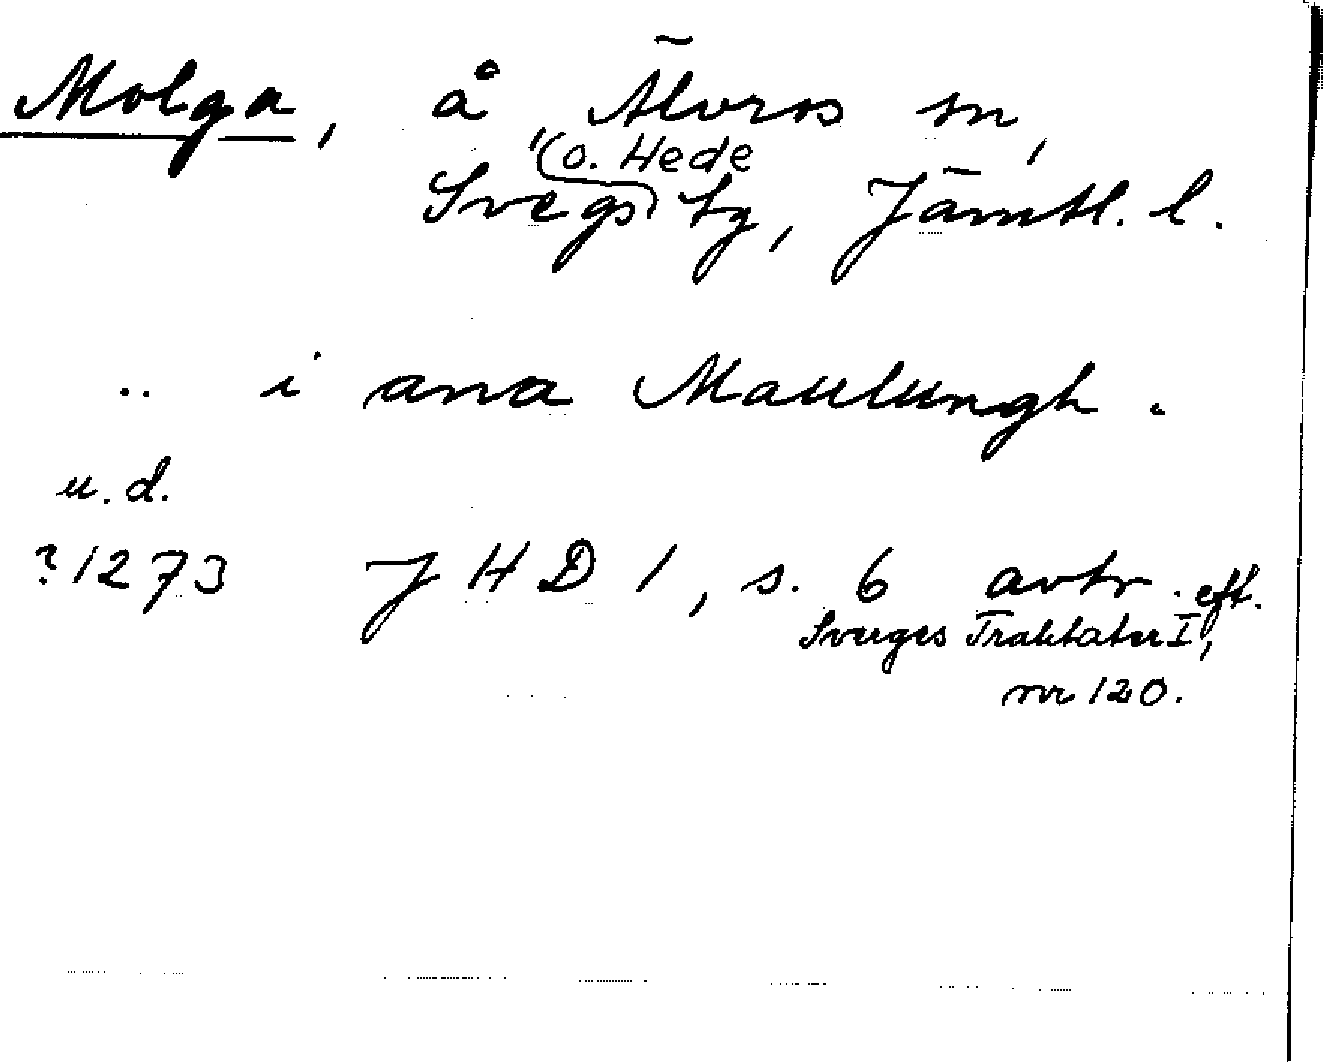 Molga, å Älvros sn,
(o. Hede
Svegs) tg, Jämtl. l.
.. i ana Maulungh.
u.d.
?1273 JHD 1, s. 6 avtr. eft.
Sverges Traktater I,
nr 120.